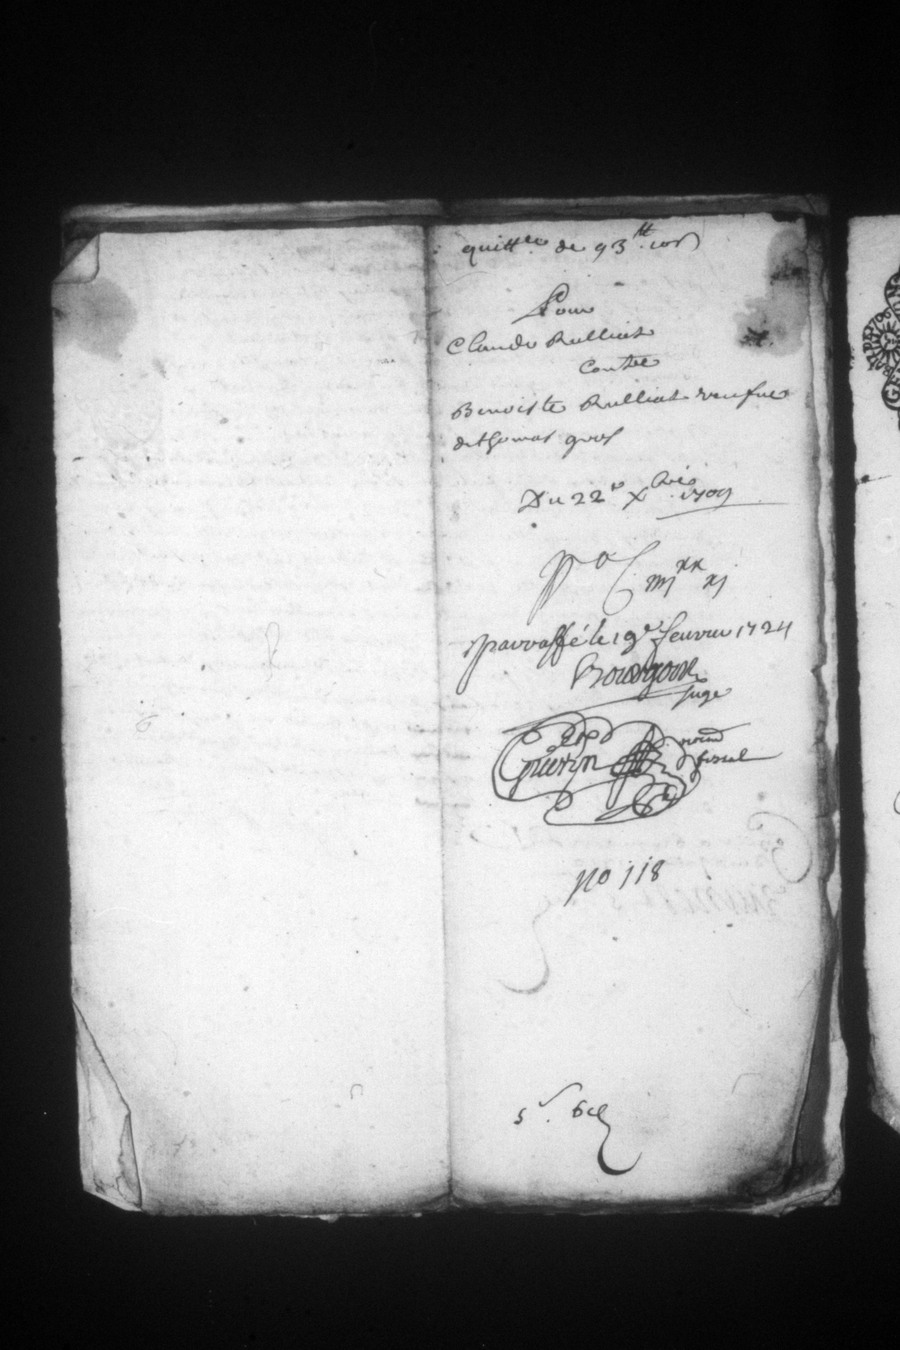 quittce de 93tt 10s
Pour
Claude Rulliat
Contre
Benoiste Rulliat veufue
de thomas gros
Du 22e Xbre 1709
paraffé le 19e feurier 1724
Bourgoin
juge
Guerin
fiscal
no 118
5s. 6d